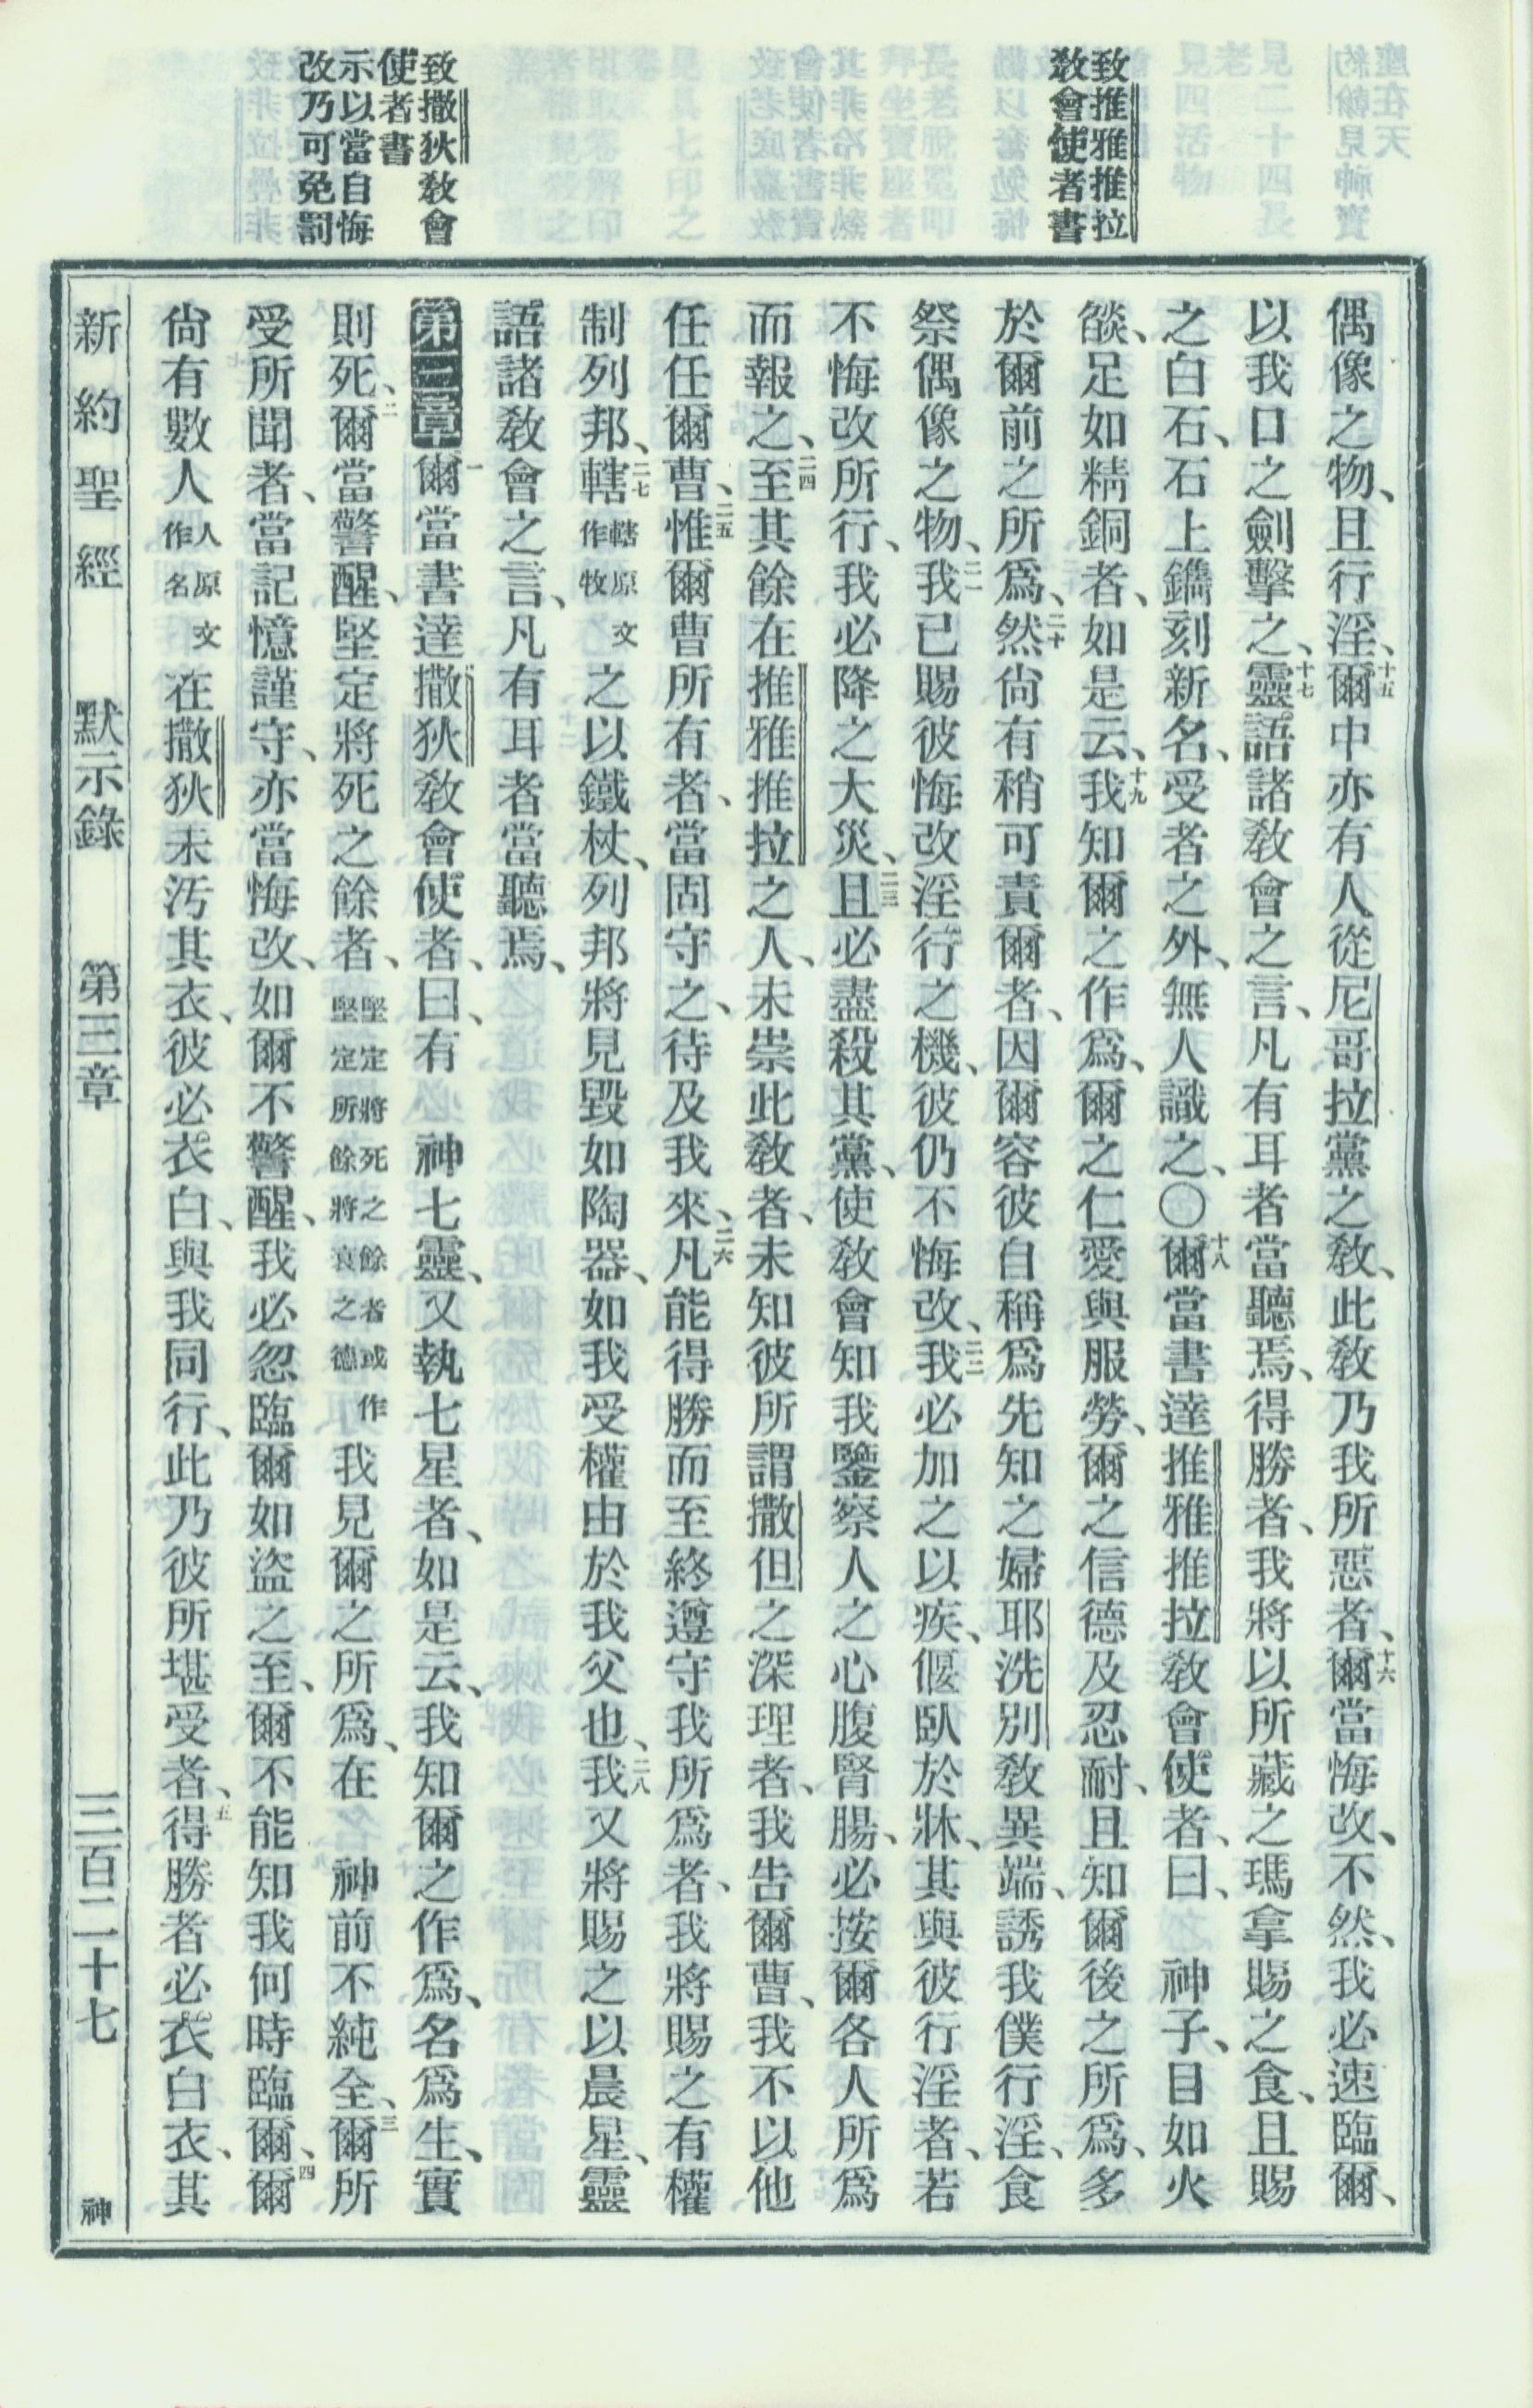 致推雅推拉
敎會使者書
致撒狄敎會
使者書
示以當自悔
改乃可免罰
偶像之物、且行淫、十五爾中亦有人從尼哥拉黨之敎、此敎乃我所惡者、十六爾當悔改、不然、我必速臨爾、
以我口之劍擊之、十七靈語諸敎會之言、凡有耳者當聽焉、得勝者、我將以所藏之瑪拿賜之食、且賜
之白石、石上鐫刻新名、受者之外、無人識之、〇十八爾當書達推雅推拉敎會使者、曰、 神子、目如火
燄、足如精銅者、如是云、十九我知爾之作爲、爾之仁愛與服勞、爾之信德及忍耐、且知爾後之所爲、多
於爾前之所爲、二十然尙有稍可責爾者、因爾容彼自稱爲先知之婦耶洗別敎異端、誘我僕行淫、食
祭偶像之物、二一我已賜彼悔改淫行之機、彼仍不悔改、二二我必加之以疾、偃臥於牀、其與彼行淫者、若
不悔改所行、我必降之大災、二三且必盡殺其黨、使敎會知我鑒察人之心腹腎腸、必按爾各人所爲
而報之、二四至其餘在推雅推拉之人、未崇此敎者、未知彼所謂撒但之深理者、我告爾曹、我不以他
任任爾曹、二五惟爾曹所有者、當固守之、待及我來、二六凡能得勝而至終遵守我所爲者、我將賜之有權
制列邦、二七轄轄原文作牧之以鐵杖、列邦將見毀如陶器、如我受權由於我父也、二八我又將賜之以晨星、靈
語諸敎會之言、凡有耳者當聽焉、
第三章一爾當書達撒狄敎會使者、曰、有 神七靈、又執七星者、如是云、我知爾之作爲、名爲生、實
則死、二爾當警醒、堅定將死之餘者、堅定將死之餘者或作堅定所餘將衰之德我見爾之所爲、在 神前不純全、三爾所
受所聞者、當記憶謹守、亦當悔改、如爾不警醒、我必忽臨爾如盜之至、爾不能知我何時臨爾、四爾
尙有數人人原文作名在撒狄未汚其衣、彼必衣白、與我同行、此乃彼所堪受者、五得勝者必衣白衣、其
新約聖經 默示錄 第三章 三百二十七 神